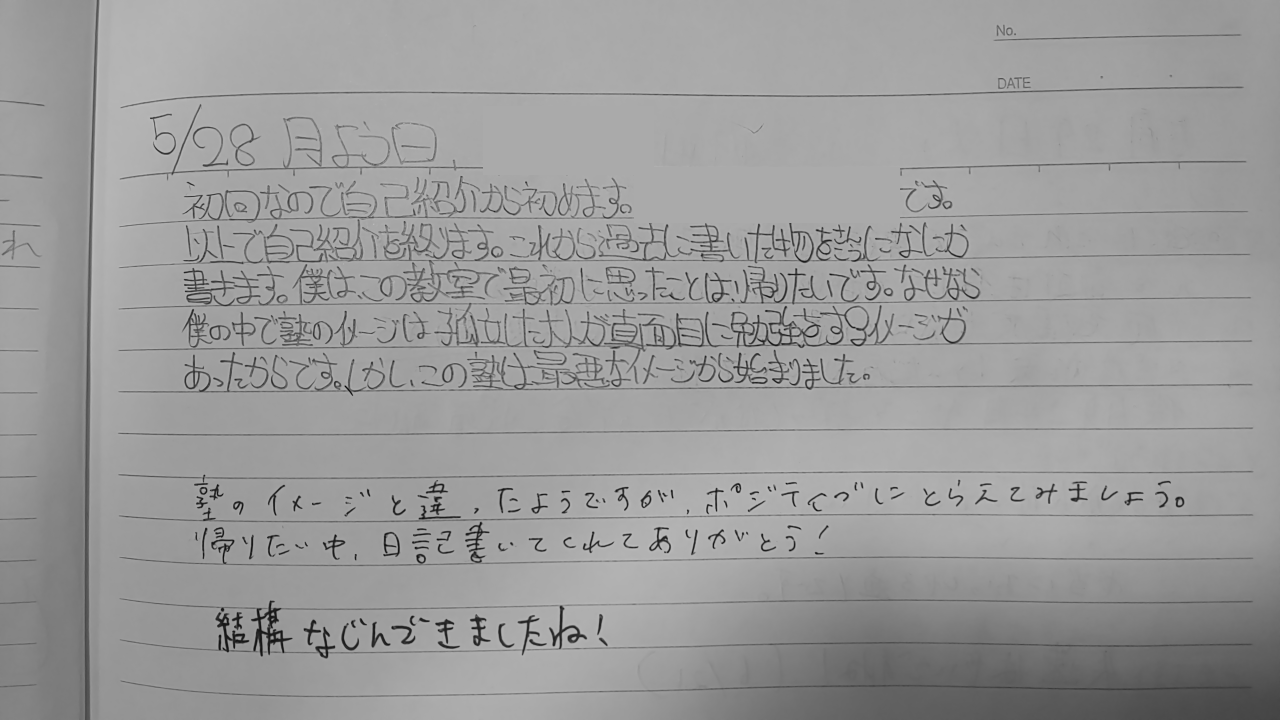 No.
DATE
5/28 月よう日.
初回なので自己紹介から初めます。 です。
以上で自己紹介を終ります。これから過去に書いた物を当になにか
書きます。僕は、この教室で最初に思ったことは、帰りたいです。なぜなら
僕の中で塾のイメージは孤立した人が真面目に勉強をするイメージが
あったからです。しかし、この塾は、最悪なイメージから始まりました。
塾のイメージと違ったようですが、ポジティブにとらえてみましょう。
帰りたい中、日記書いてくれてありがとう!
結構なじんできましたね!
れ